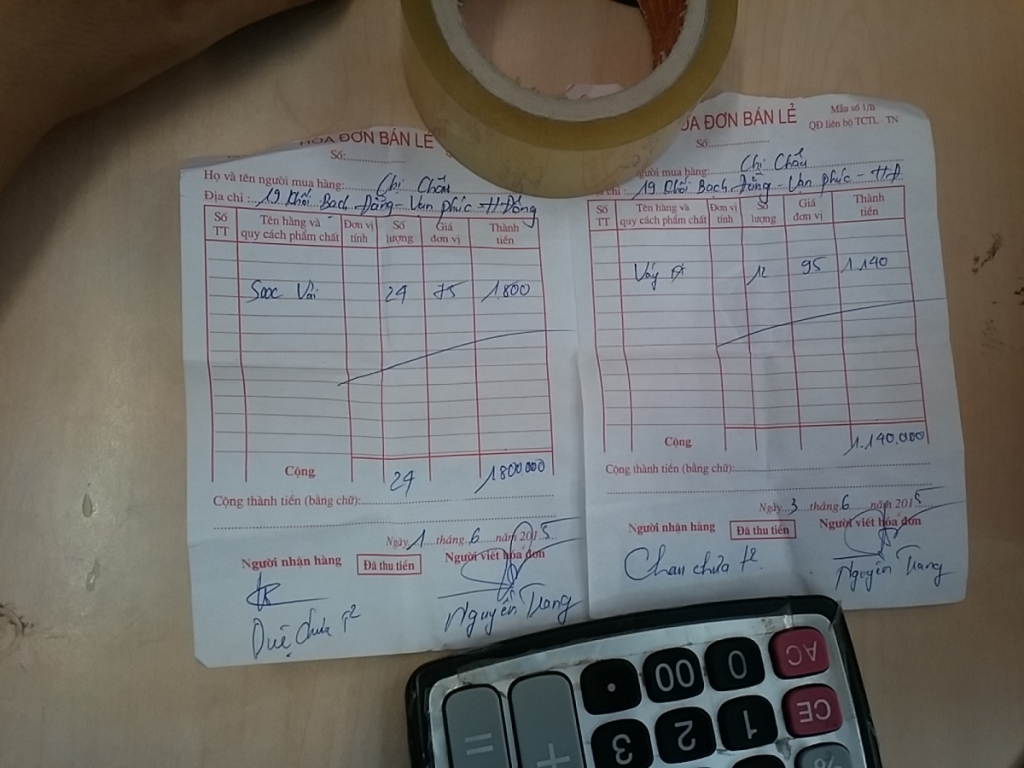 HÓA ĐƠN BÁN LẺ
Số:
Họ và tên người mua hàng: Chị Chẩu
Địa chỉ: 19 Khối Bạch Đằng - Vạn phúc - H Đông
Số TT Tên hàng và quy cách phẩm chất Đơn vị tính Số lượng Giá đơn vị Thành tiền
Sooc Vải 24 75 1.800
Cộng 24 1800.000
Cộng thành tiền (bằng chữ):
Ngày 1 tháng 6 năm 2015
Người nhận hàng Đã thu tiền Người viết hóa đơn
Duệ chưa T2 Nguyễn Trang
ÓA ĐƠN BÁN LẺ
Mẫu số 1/B
QĐ liên bộ TCTL TN
Số:
người mua hàng: Chị Chẩu
chỉ: 19 Khối Bạch Đằng - Vạn phúc - HĐ
Số TT Tên hàng và quy cách phẩm chất Đơn vị tính Số lượng Giá đơn vị Thành tiền
Váy 12 95 1.140
Cộng 1.140.000
Cộng thành tiền (bằng chữ):
Ngày 3 tháng 6 năm 2015
Người nhận hàng Đã thu tiền Người viết hóa đơn
chưa Nguyễn Trang
= + . 00 0 AC
3 2 1 CE
%